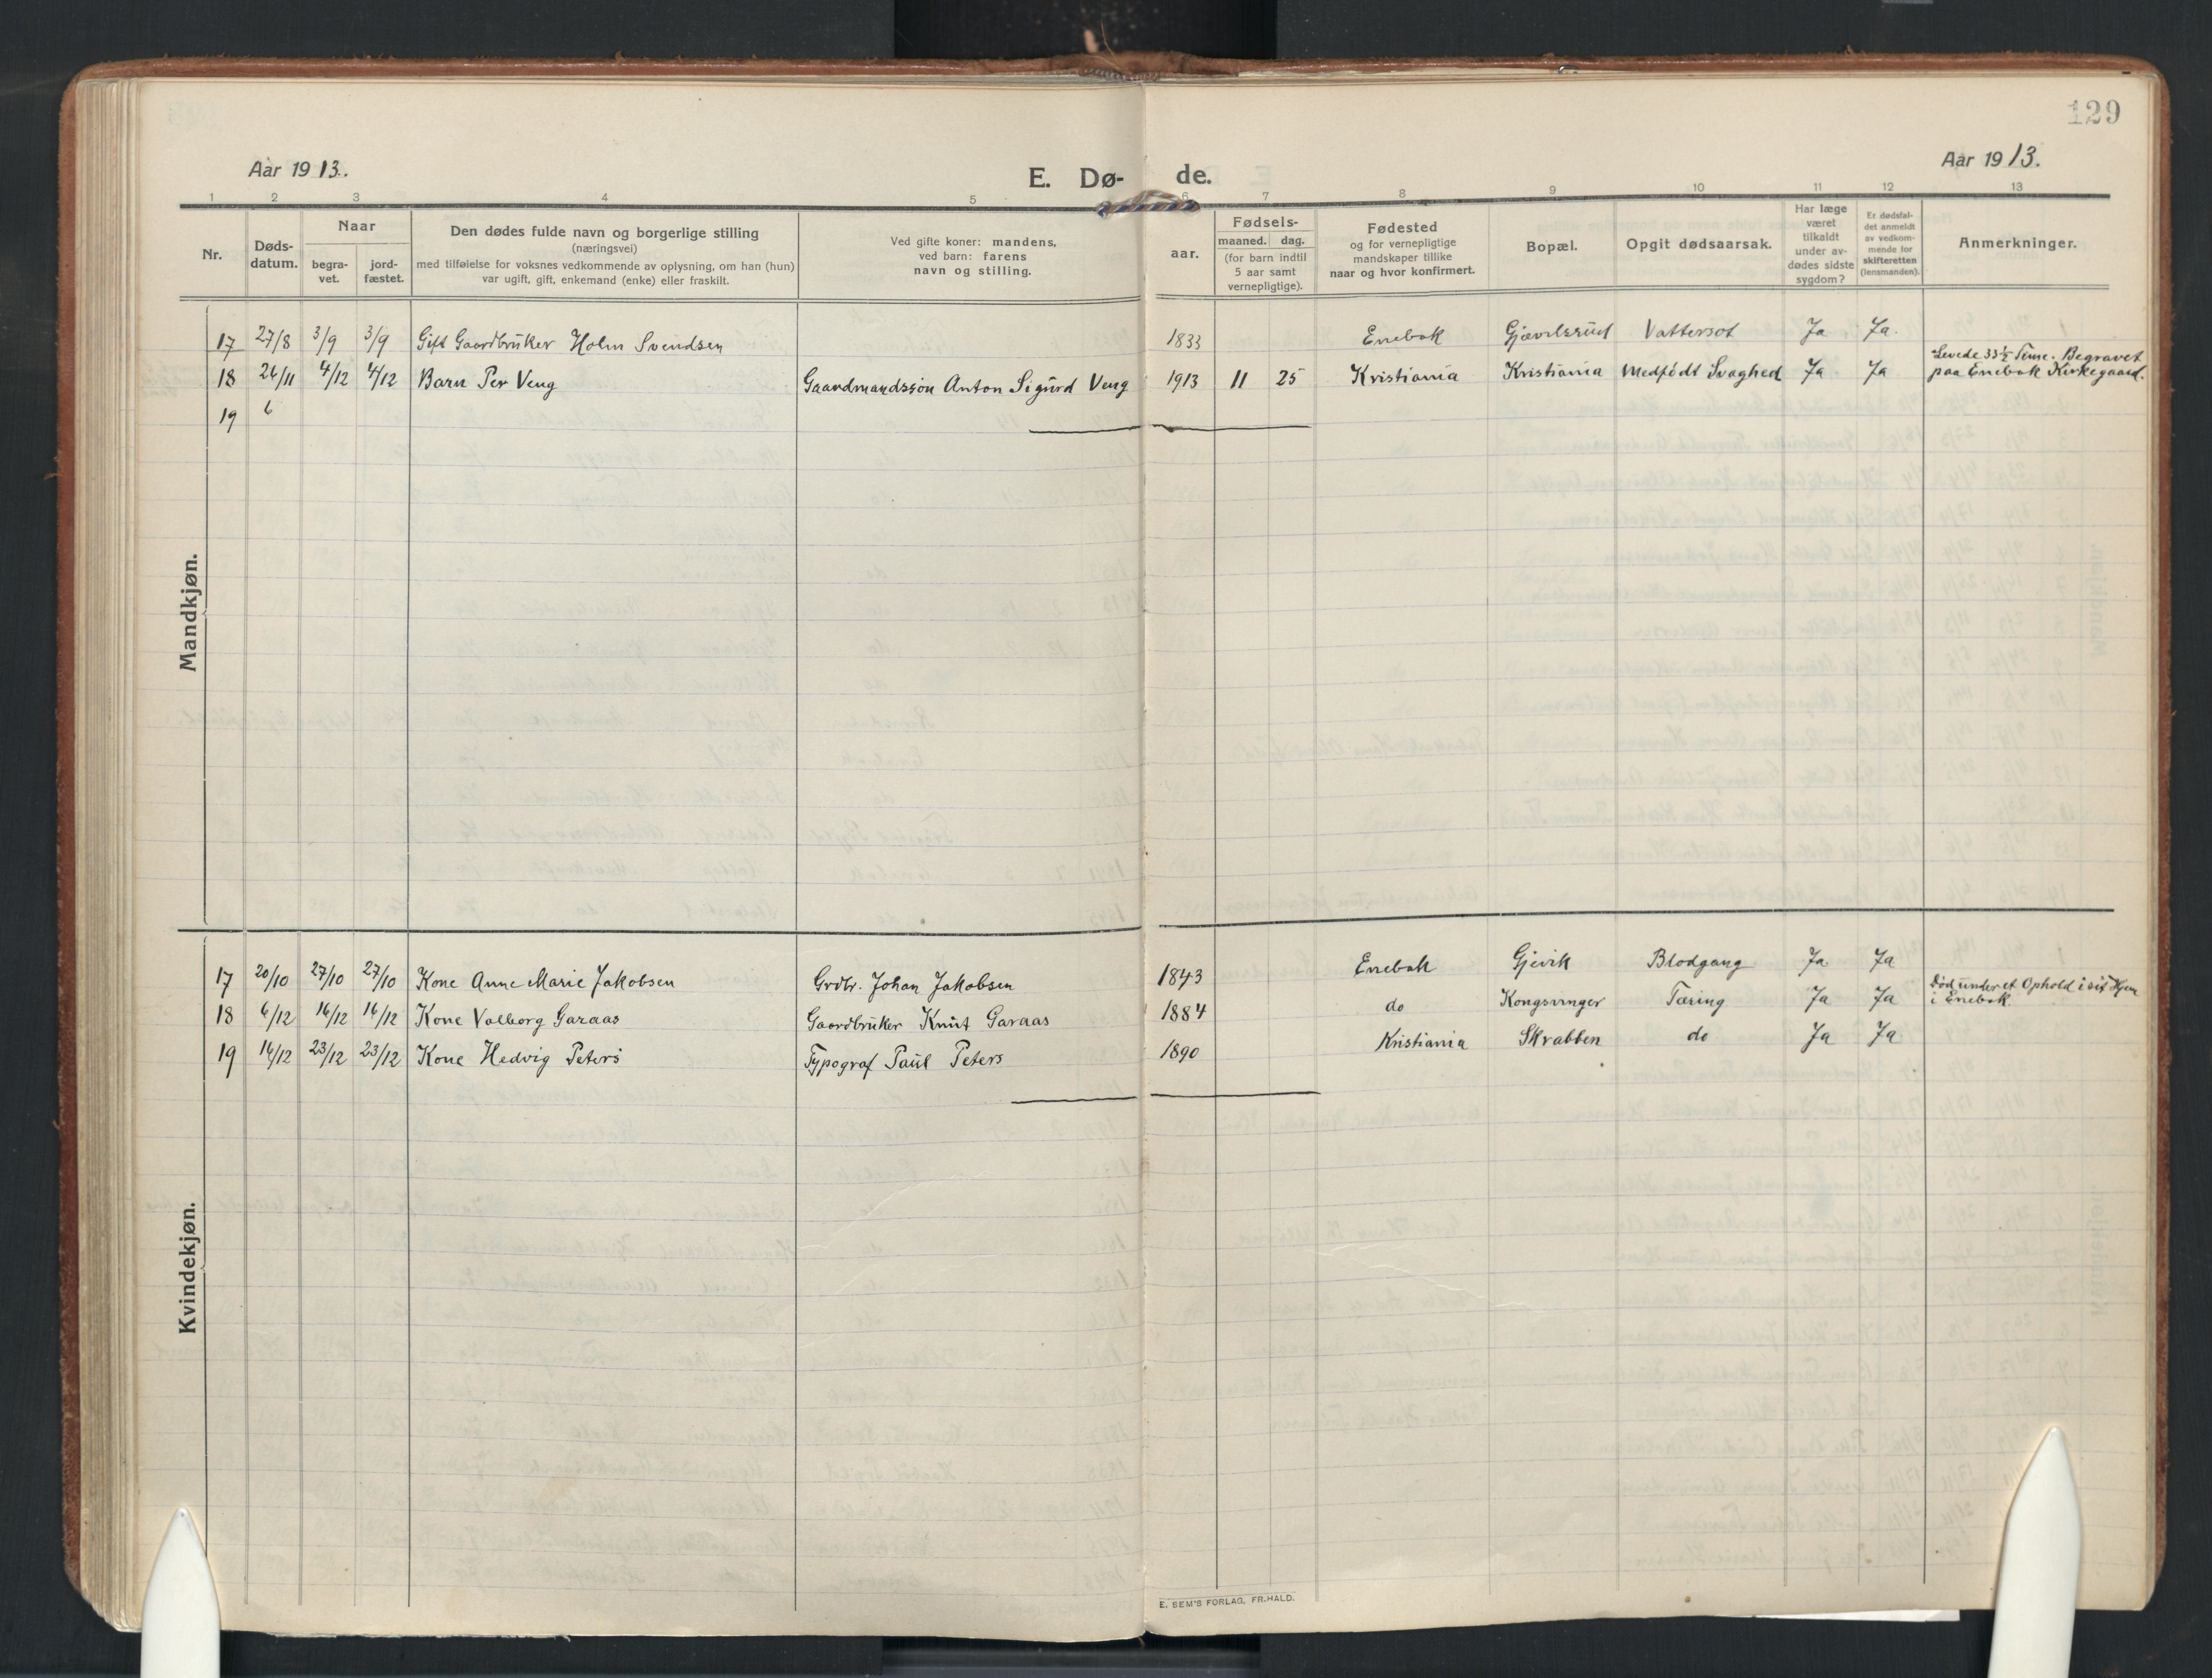 129
Aar 1913.
E. Dø-
de.
Aar 1913.
1 2 3 4 5 6 7 8 9 10 11 12 13
Nr.
Døds-
datum.
Naar
begra-
vet.
jord-
fæstet.
Den dødes fulde navn og borgerlige stilling
(næringsvei)
med tilføielse for voksnes vedkommende av oplysning, om han (hun)
var ugift, gift, enkemand (enke) eller fraskilt.
Ved gifte koner: mandens,
ved barn: farens
navn og stilling.
Fødsels-
aar.
maaned. dag.
(for barn indtil
5 aar samt
vernepligtige).
Fødested
og for vernepligtige
mandskaper tillike
naar og hvor konfirmert.
Bopæl.
Opgit dødsaarsak.
Har læge
været
tilkaldt
under av-
dødes sidste
sygdom?
Er dødsfal-
det anmeldt
av vedkom-
mende for
skifteretten
(lensmanden).
Anmerkninger.
Mandkjøn.
17 27/8 3/9 3/9 Gift Gaardbruker Holm Svendsen 1833 Enebak Gjævelsrud Vattersot Ja Ja.
18 26/11 4/12 4/12 Barn Per Veng Gaardmandssøn Anton Sigurd Veng 1913 11 25 Kristiania Kristiania Medfødt Svaghed Ja Ja Levede 33½ Time. Begravet
paa Enebak Kirkegaard.
19 6
Kvindekjøn.
17 20/10 27/10 27/10 Kone Anne Marie Jakobsen Grdbr. Johan Jakobsen 1843 Enebak Gjevik Blodgang Ja Ja
18 6/12 16/12 16/12 Kone Valborg Garaas Gaardbruker Knut Garaas 1884 do Kongsvinger Tæring Ja Ja Død under et Ophold i sit Hjem
i Enebak
19 16/12 23/12 23/12 Kone Hedvig Peters Typograf Paul Peters 1890 Kristiania Skrabben do Ja Ja
E. SEM'S FORLAG, FR.HALD.